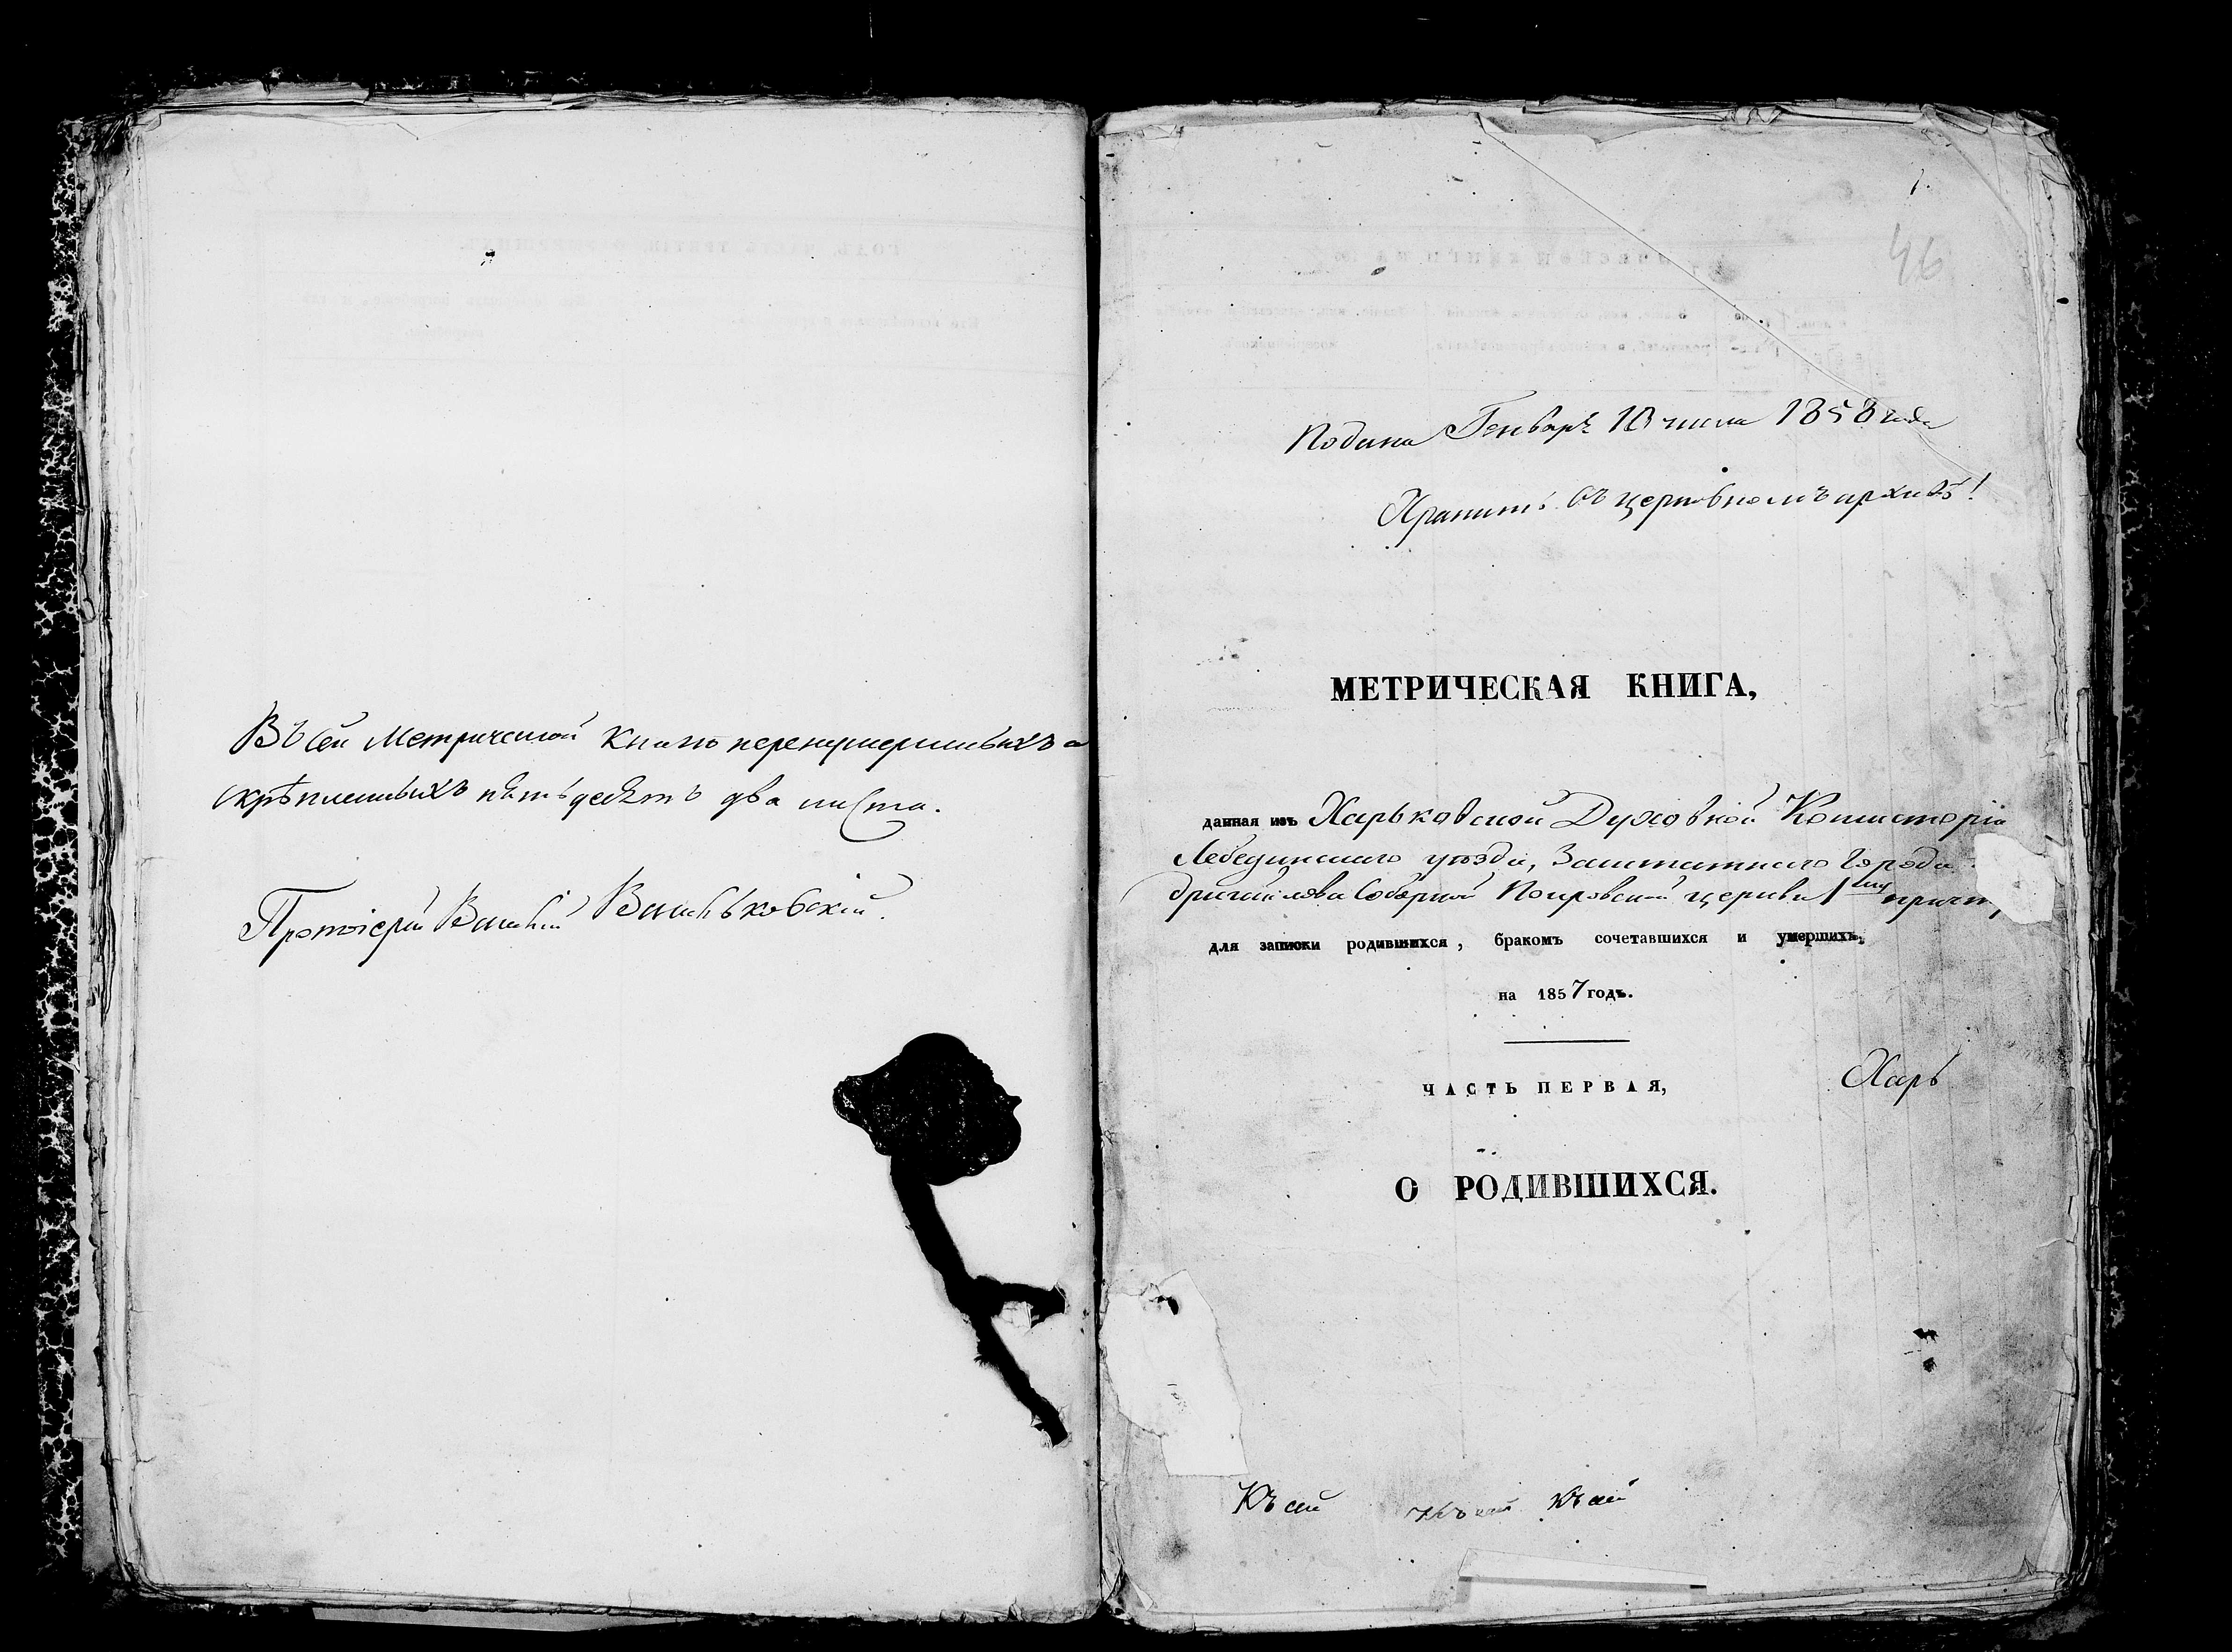 Въ сей Метрической Книгѣ перенумерованныхъ и
скрѣпленныхъ пятьдесятъ два листа.
Протоіерей Василій
46
Подана Генваря 10 числа 1858 года
Хранить въ церковномъ архивѣ!
МЕТРИЧЕСКАЯ КНИГА,
данная изъ Харьковской Духовной Консисторіи
Лебединскаго уѣзда, Заштатнаго Города
Соборной Покровской церкви 1му причту
для записки родившихся, бракомъ сочетавшихся и умершихъ,
на 1857 годъ.
ЧАСТЬ ПЕРВАЯ,
Харь
О РОДИВШИХСЯ.
Къ сей къ сей Къ сей